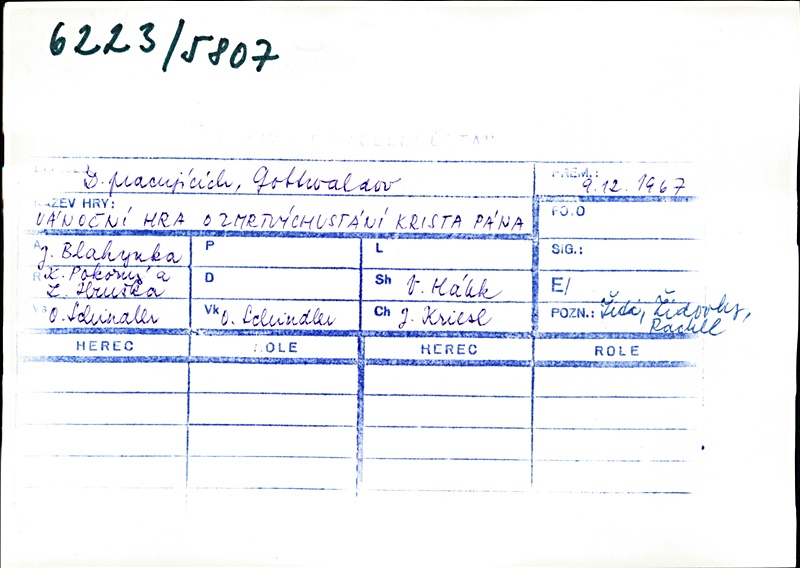 6223/5807
D. pracujících, Gottwaldov
PREM.: 9.12. 1967
NÁZEV HRY:
VÁNOČNÍ HRA O ZMRTVÝCHVSTÁNÍ KRISTA PÁNA
FOTO
A J. Blahynka P L SIG.:
R X. Pokorný a D Sh V. Hálik E/
Z. Hruška
O. Schindler Vk O. Schindler Ch J. Kriesl POZN.: Židé, Židovky,
Rachel
HEREC ROLE HEREC ROLE